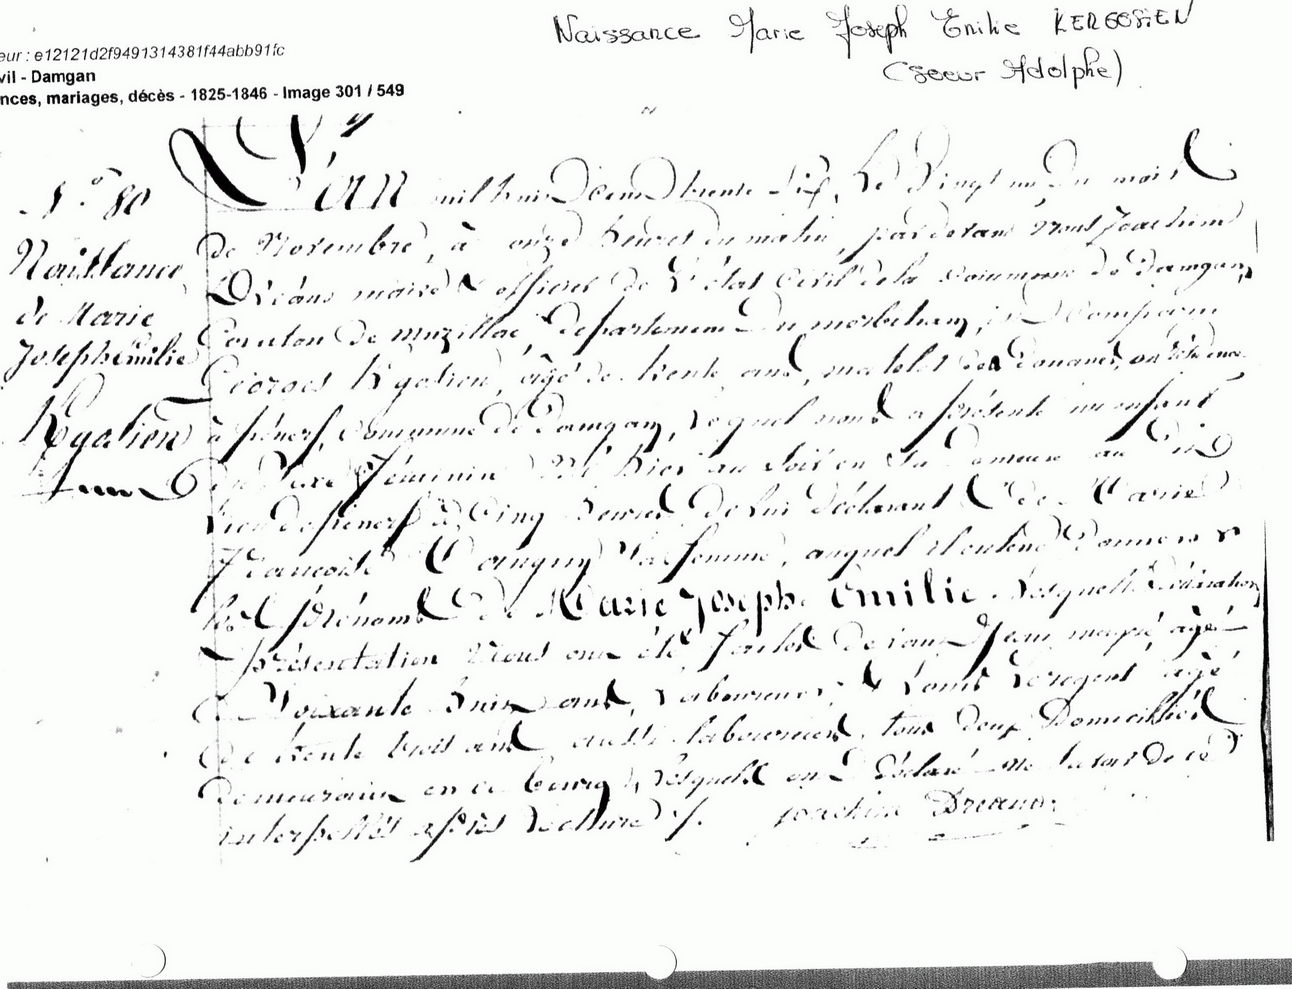 Naissance Marie Joseph Emilie KERGOSIEN
(soeur Adolphe)
eur : e12121d2f9491314381f44abb91fc
vil - Damgan
nces, mariages, décès - 1825-1846 - Image 301 / 549
N.° 80
Naissance
de Marie
Joseph Emilie
Kgosien
L'an mil huit cent trente six, le Vingt un du mois
de Novembre, à onze heures du matin, pardevant Nous Joachim
Dréano maire & officier de l'état Civil de la Commune de Damgan,
Canton de muzillac, département du morbihan, est Comparu
Georges Kgosien, âgé de trente ans, matelot des Douanes, en résidence
à pénerf, Commune de Damgan, lequel nous a présenté un enfant
du sexe féminin né hier au soir en sa Demeure au dit
lieu de pénerf à Cinq heures de lui déclarant & de Marie
Françoise sa femme, auquel il entend donner
les prénoms de Marie Joseph Emilie. Lesquelles déclaration
présentation Nous ont été faites devant Jean âgé
de soixante huit ans, laboureur, & Louis âgé
de trente trois ans aussi laboureur, tous deux Domiciliés
demeurant en ce bourg, lesquels ont Déclaré ne savoir de ce
interpellés après lecture
joachim Dreano